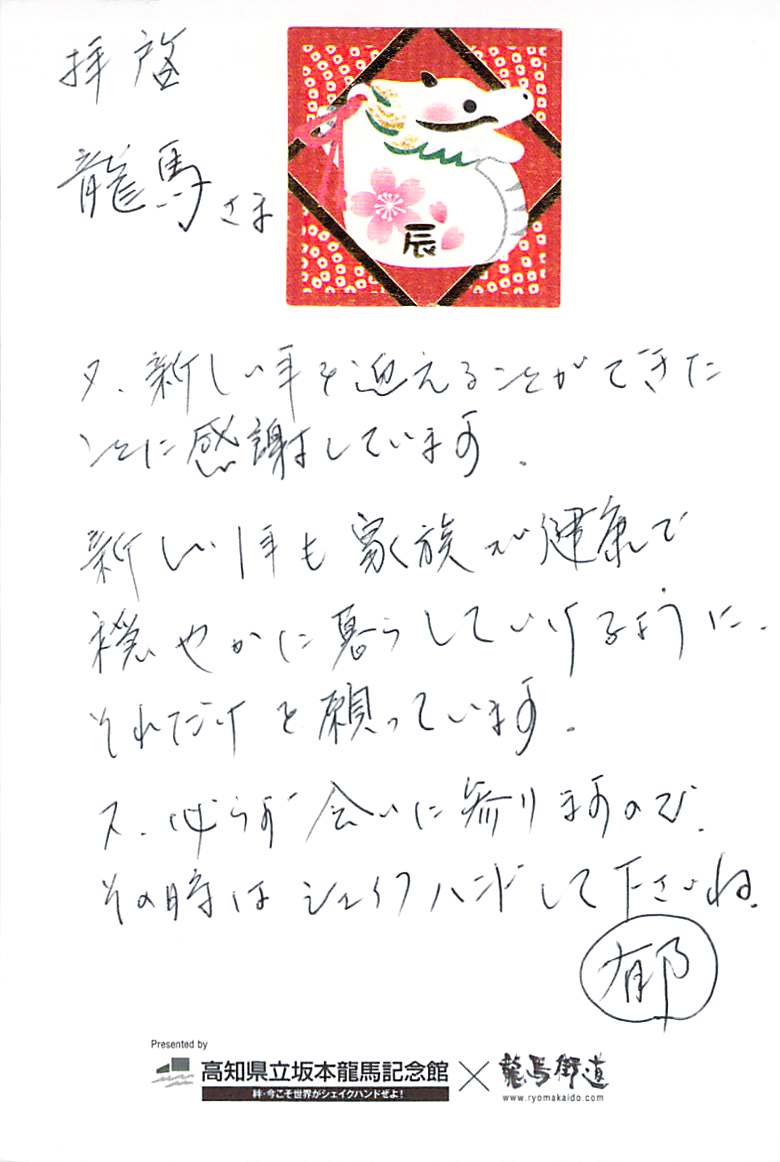 拝啓
龍馬さま
辰
又、新しい年を迎えることができた
ことに感謝しています。
新しい1年も家族が健康で
穏やかに暮らしていけるように、
それだけを願っています。
又、必らず会いに参りますので、
その時はシェイクハンドして下さいね。
郁
Presented by
高知県立坂本龍馬記念館×龍馬街道
絆・今こそ世界がシェイクハンドぜよ!
www.ryomakaido.com